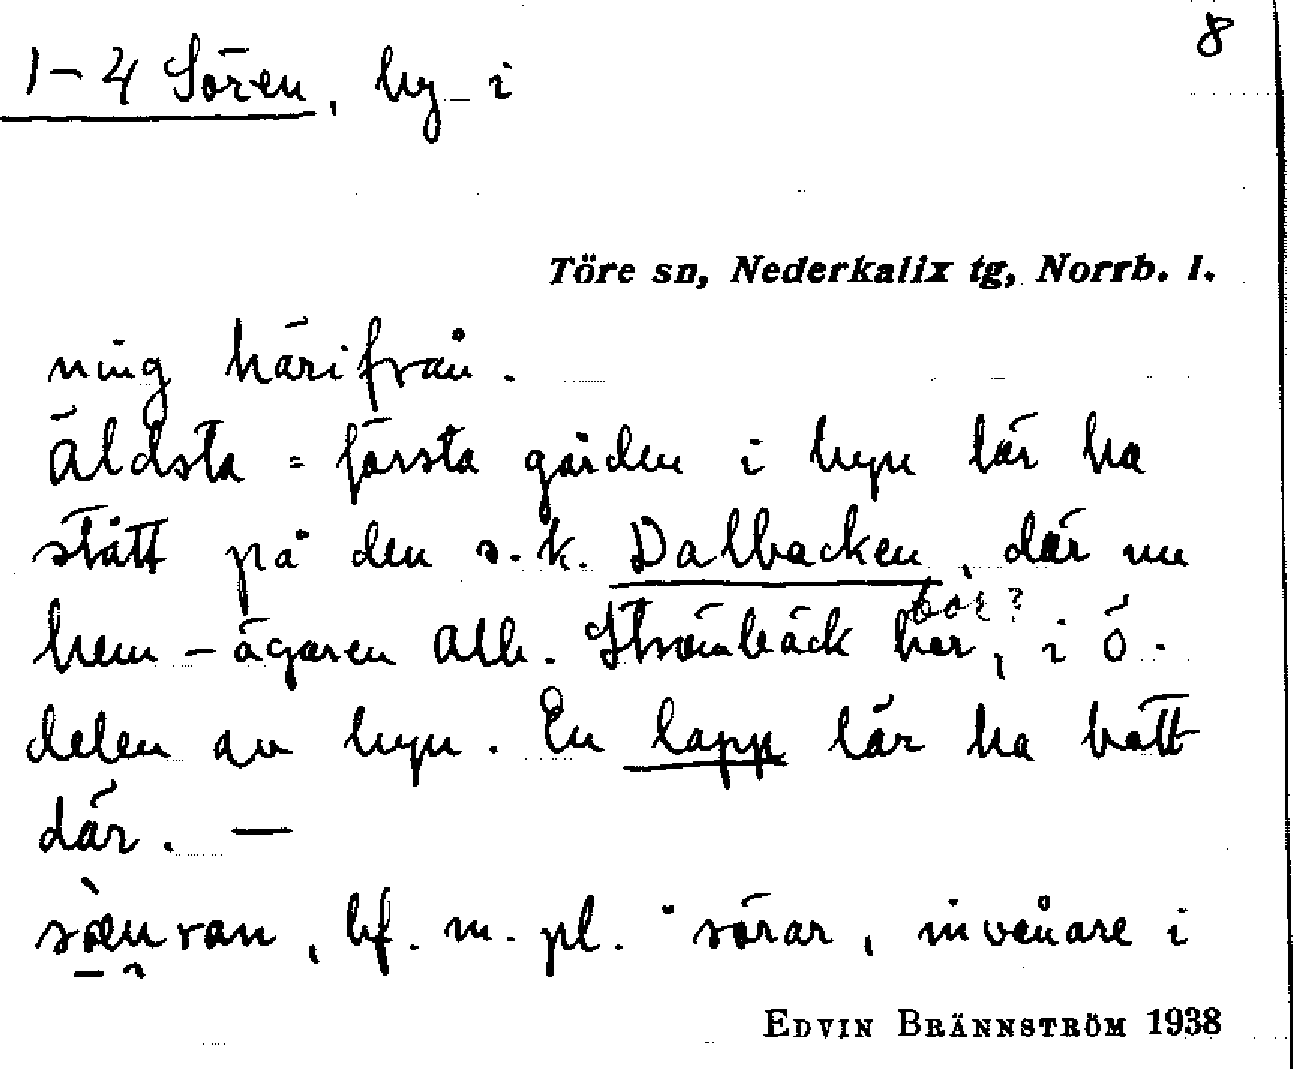 8
1–4 Sören, by i
Töre sn, Nederkalix tg, Norrb. l.
ning härifrån.
Äldsta = första gården i byn lär ha
stått på den s.k. Dalbacken, där nu
bor?
hem-ägaren Alb. Strömbäck bor, i ö.
delen av byn. En lapp lär ha bott
där. —
bf. m. pl. "sörar, invånare i
EDVIN BRÄNNSTRÖM 1938